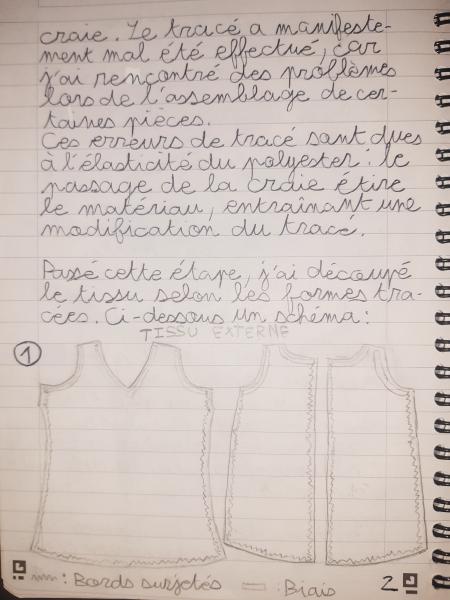 craie. Le tracé a manifeste-
ment mal été effectué, car
j'ai rencontré des problèmes
lors de l'assemblage de cer-
taines pièces.
Ces erreurs de tracé sont dues
à l'élasticité du polyester : le
passage de la craie étire
le matériau, entraînant une
modification du tracé.
Passé cette étape, j'ai découpé
le tissu selon les formes tra-
cées. Ci-dessous un schéma :
TISSU EXTERNE
1
: Bords surjetés : Biais 2